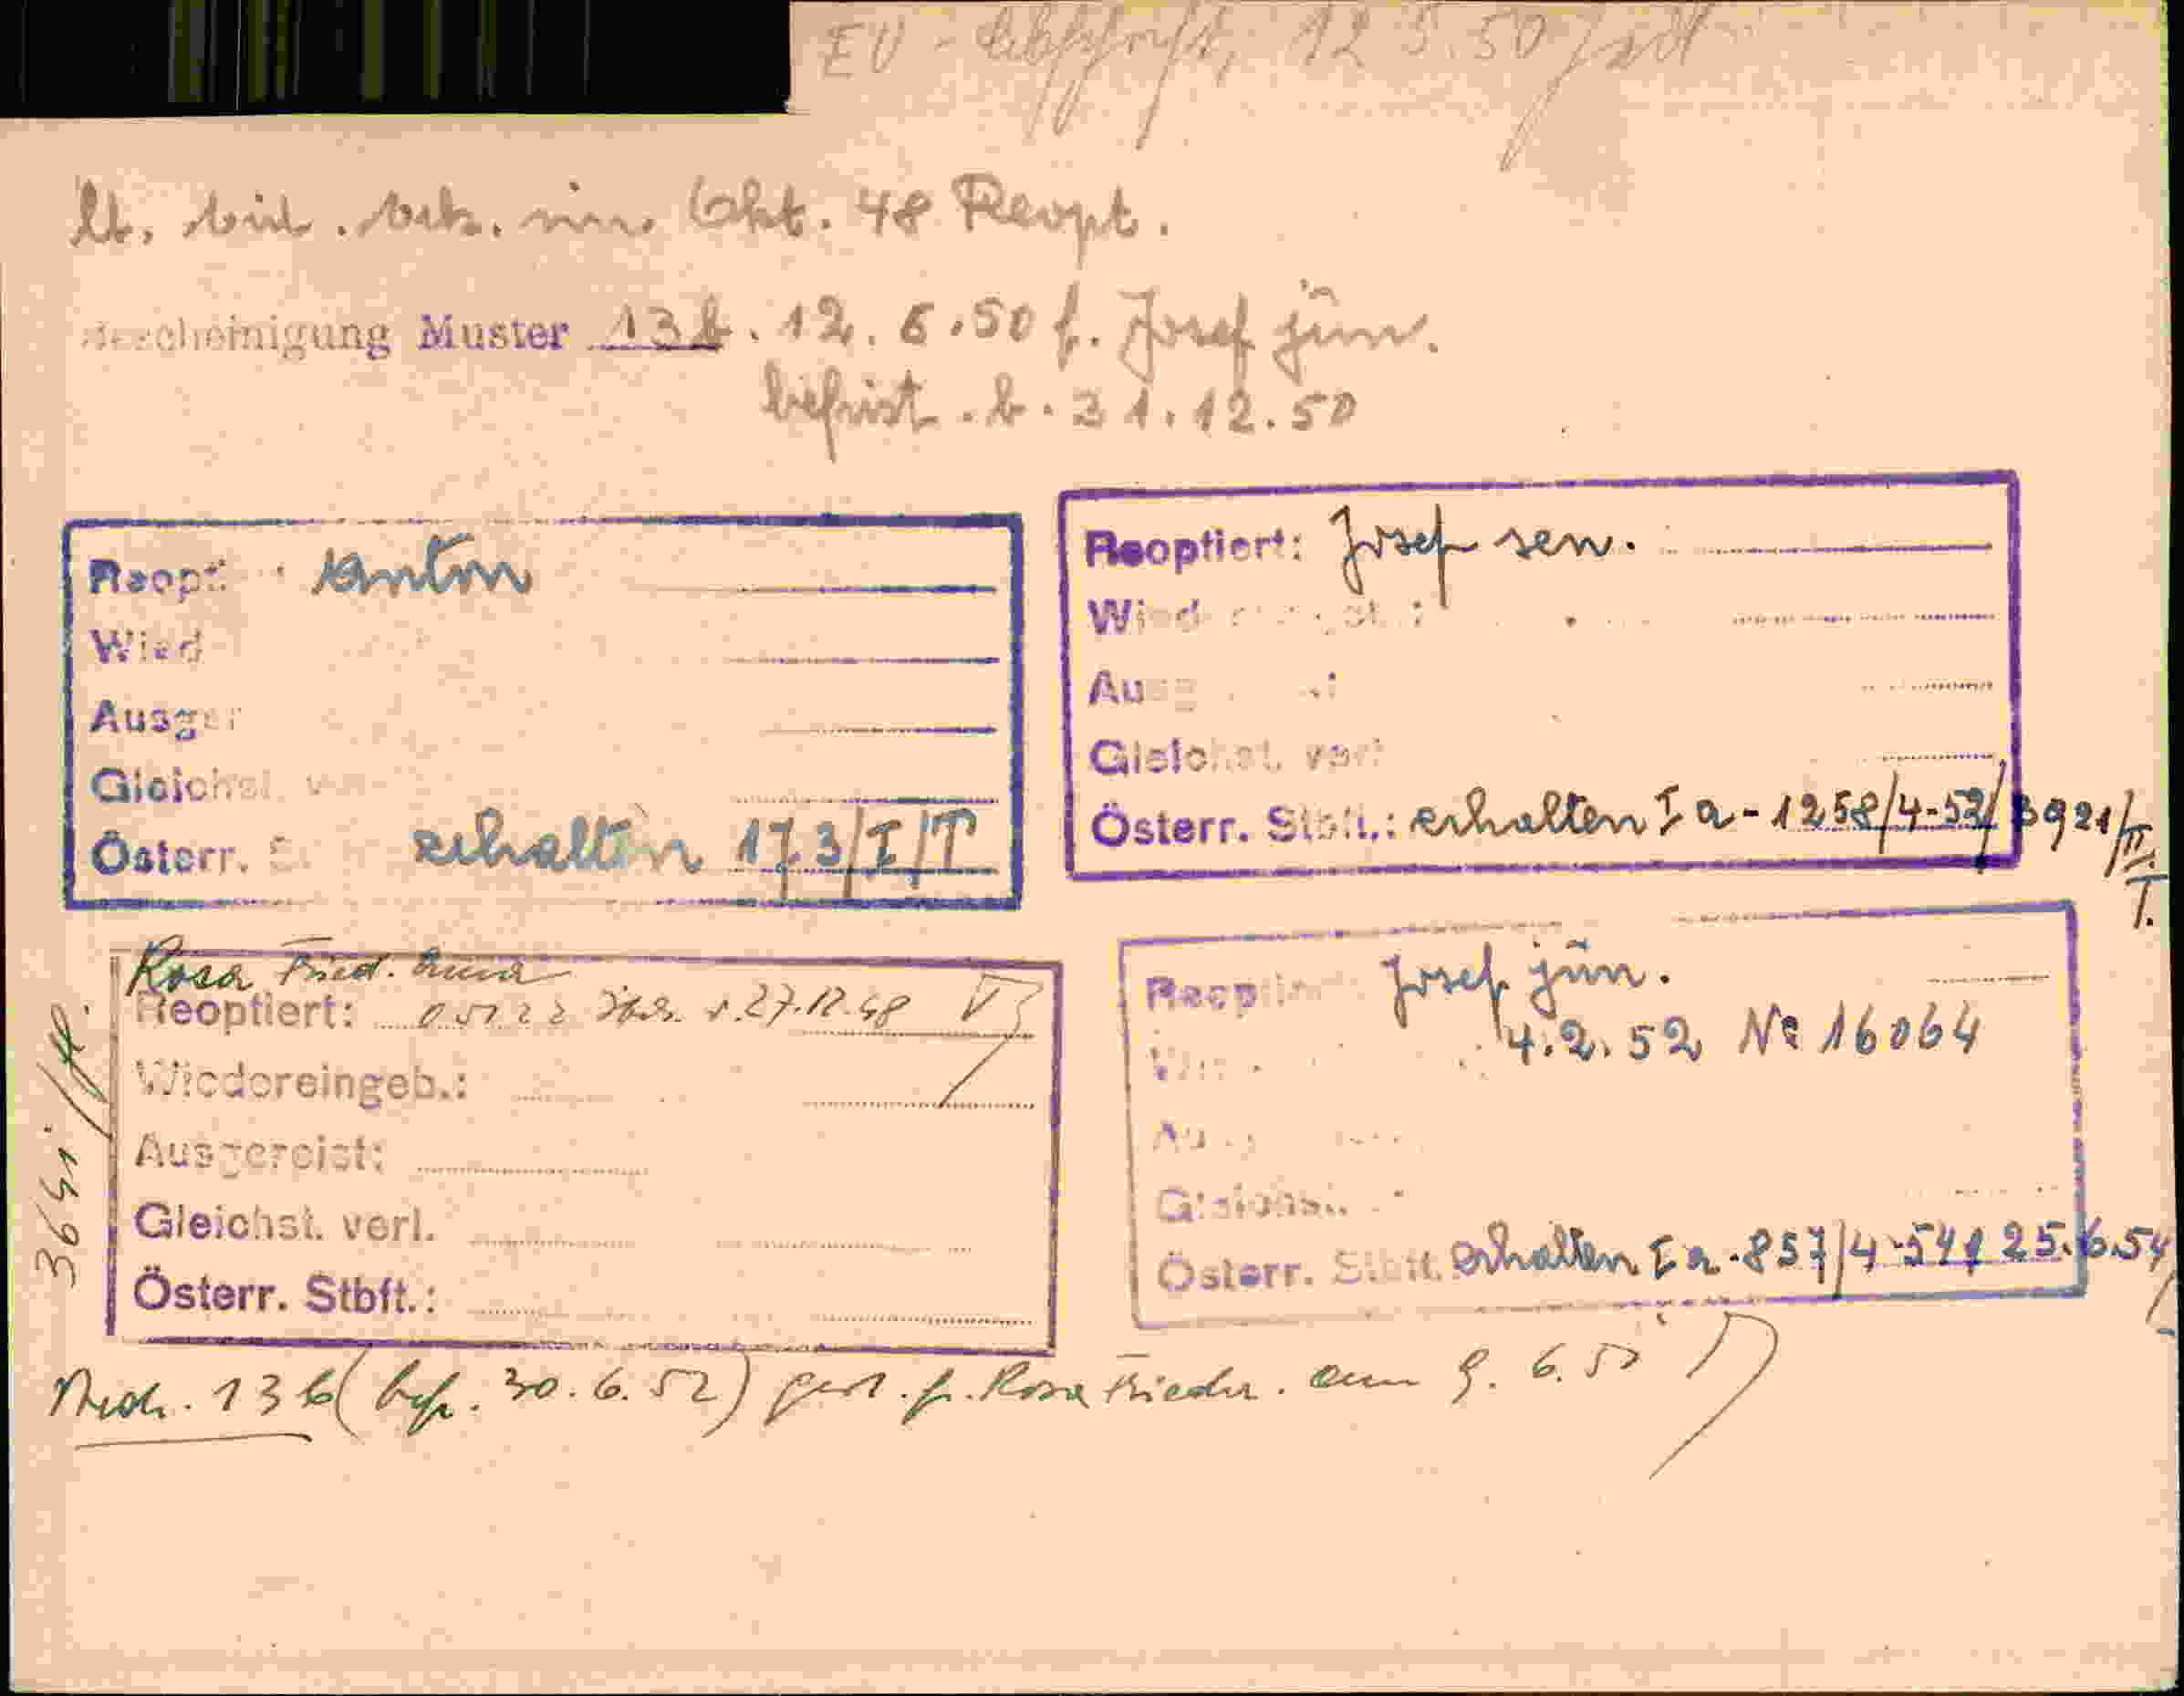 EV - Abschrift, 12 5.50
lt. Okt. 48 Reopt.
Bescheinigung Muster 13b. 12. 6.50 f. Josef jun.
befrist. b. 31.12.50
Reopt: Anton
Wied
Ausger
Gleichst. ver
Österr. erhalten 173/I/T
Reoptiert: Josef sen.
Wied
Ausg
Gleichst. verl
Österr. Stbft.: erhalten I a - 1258/4-52/ 3921/II.
T.
Rosa Fried. Anna
Reoptiert: v. 27.12.48
Wiedereingeb.:
Ausgereist:
Gleichst. verl.
Österr. Stbft.:
Reoptier Josef jün.
4.2.52 No 16064
Gleichst.
Österr. Stbft. erhalten I a - 857/4-54 25.6.54
13b (bef. 30.6.52) f. Rosa Frieder. am 9. 6.